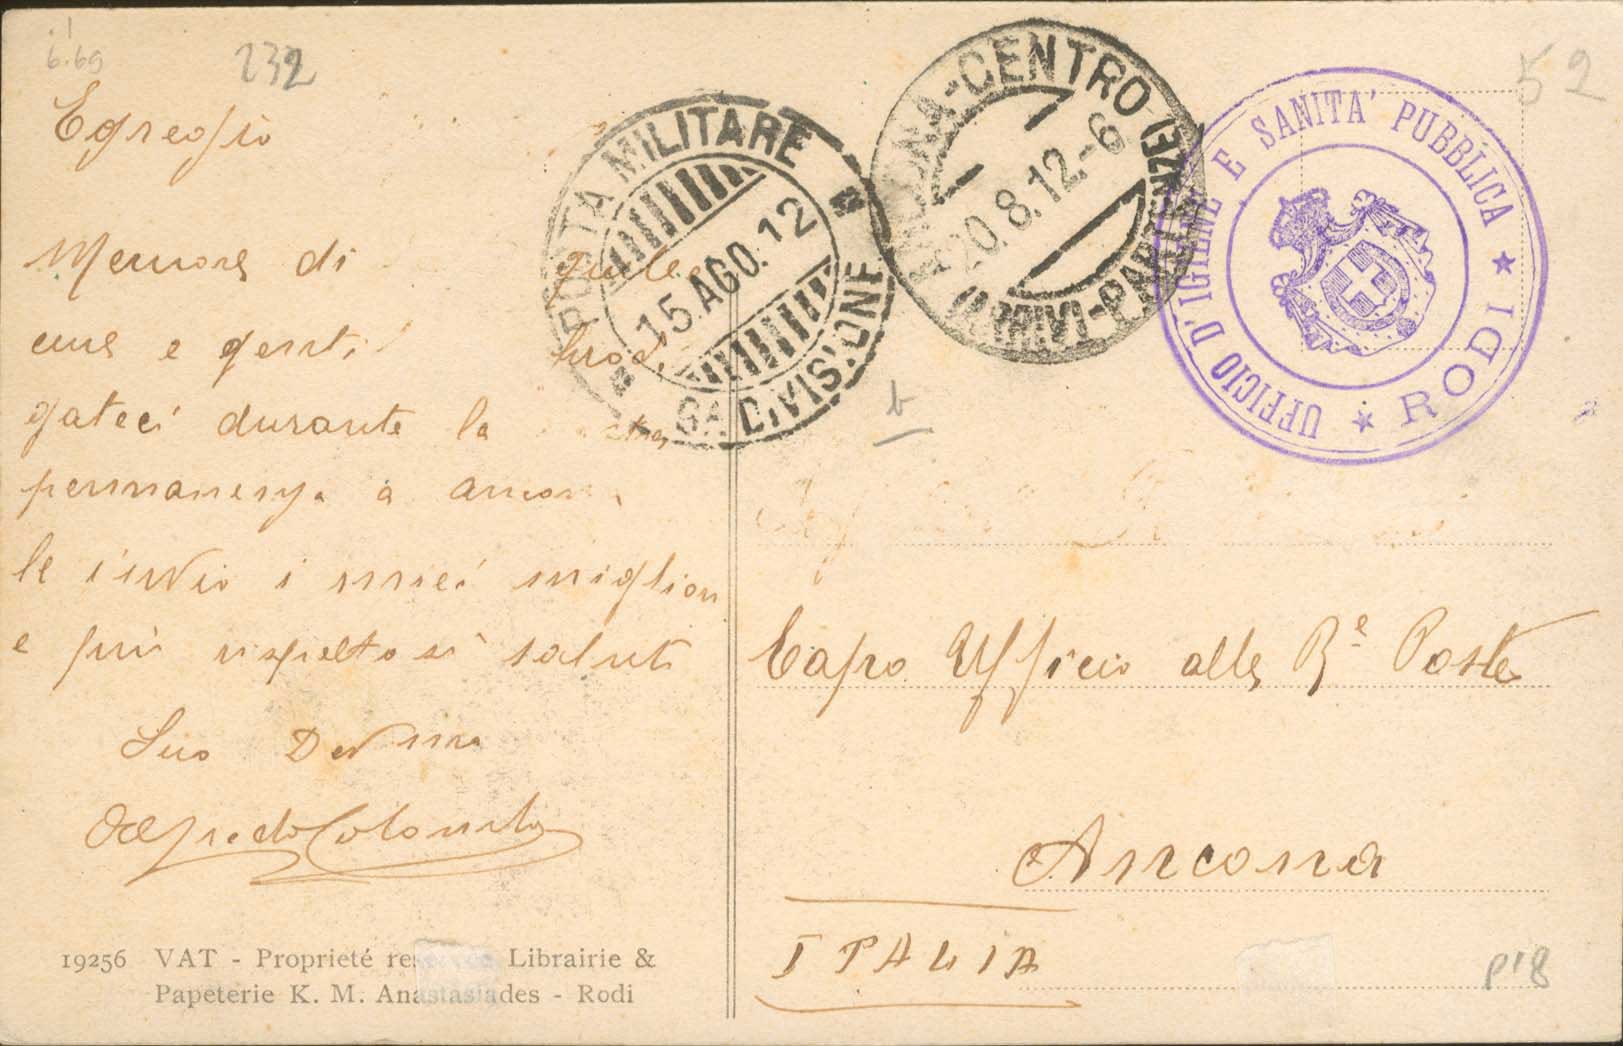 6.69
232
52
Egregio
Memore di
e gentil
durante la
permanenza a Ancona
le invio i miei migliori
e più rispettosi saluti
Suo Dev mo
Alfredo Colombo
19256 VAT - Proprieté Librairie &
Papeterie K. M. Anastasiades - Rodi
POSTA MILITARE
15 AGO. 12
6A DIVISIONE
ANCONA-CENTRO
20.8.12.-6
(ARRIVI-PARTENZE)
UFFICIO D'IGIENE E SANITA' PUBBLICA
★ RODI ★
b
Capo Ufficio alle Re Poste
Ancona
ITALIA
p'8